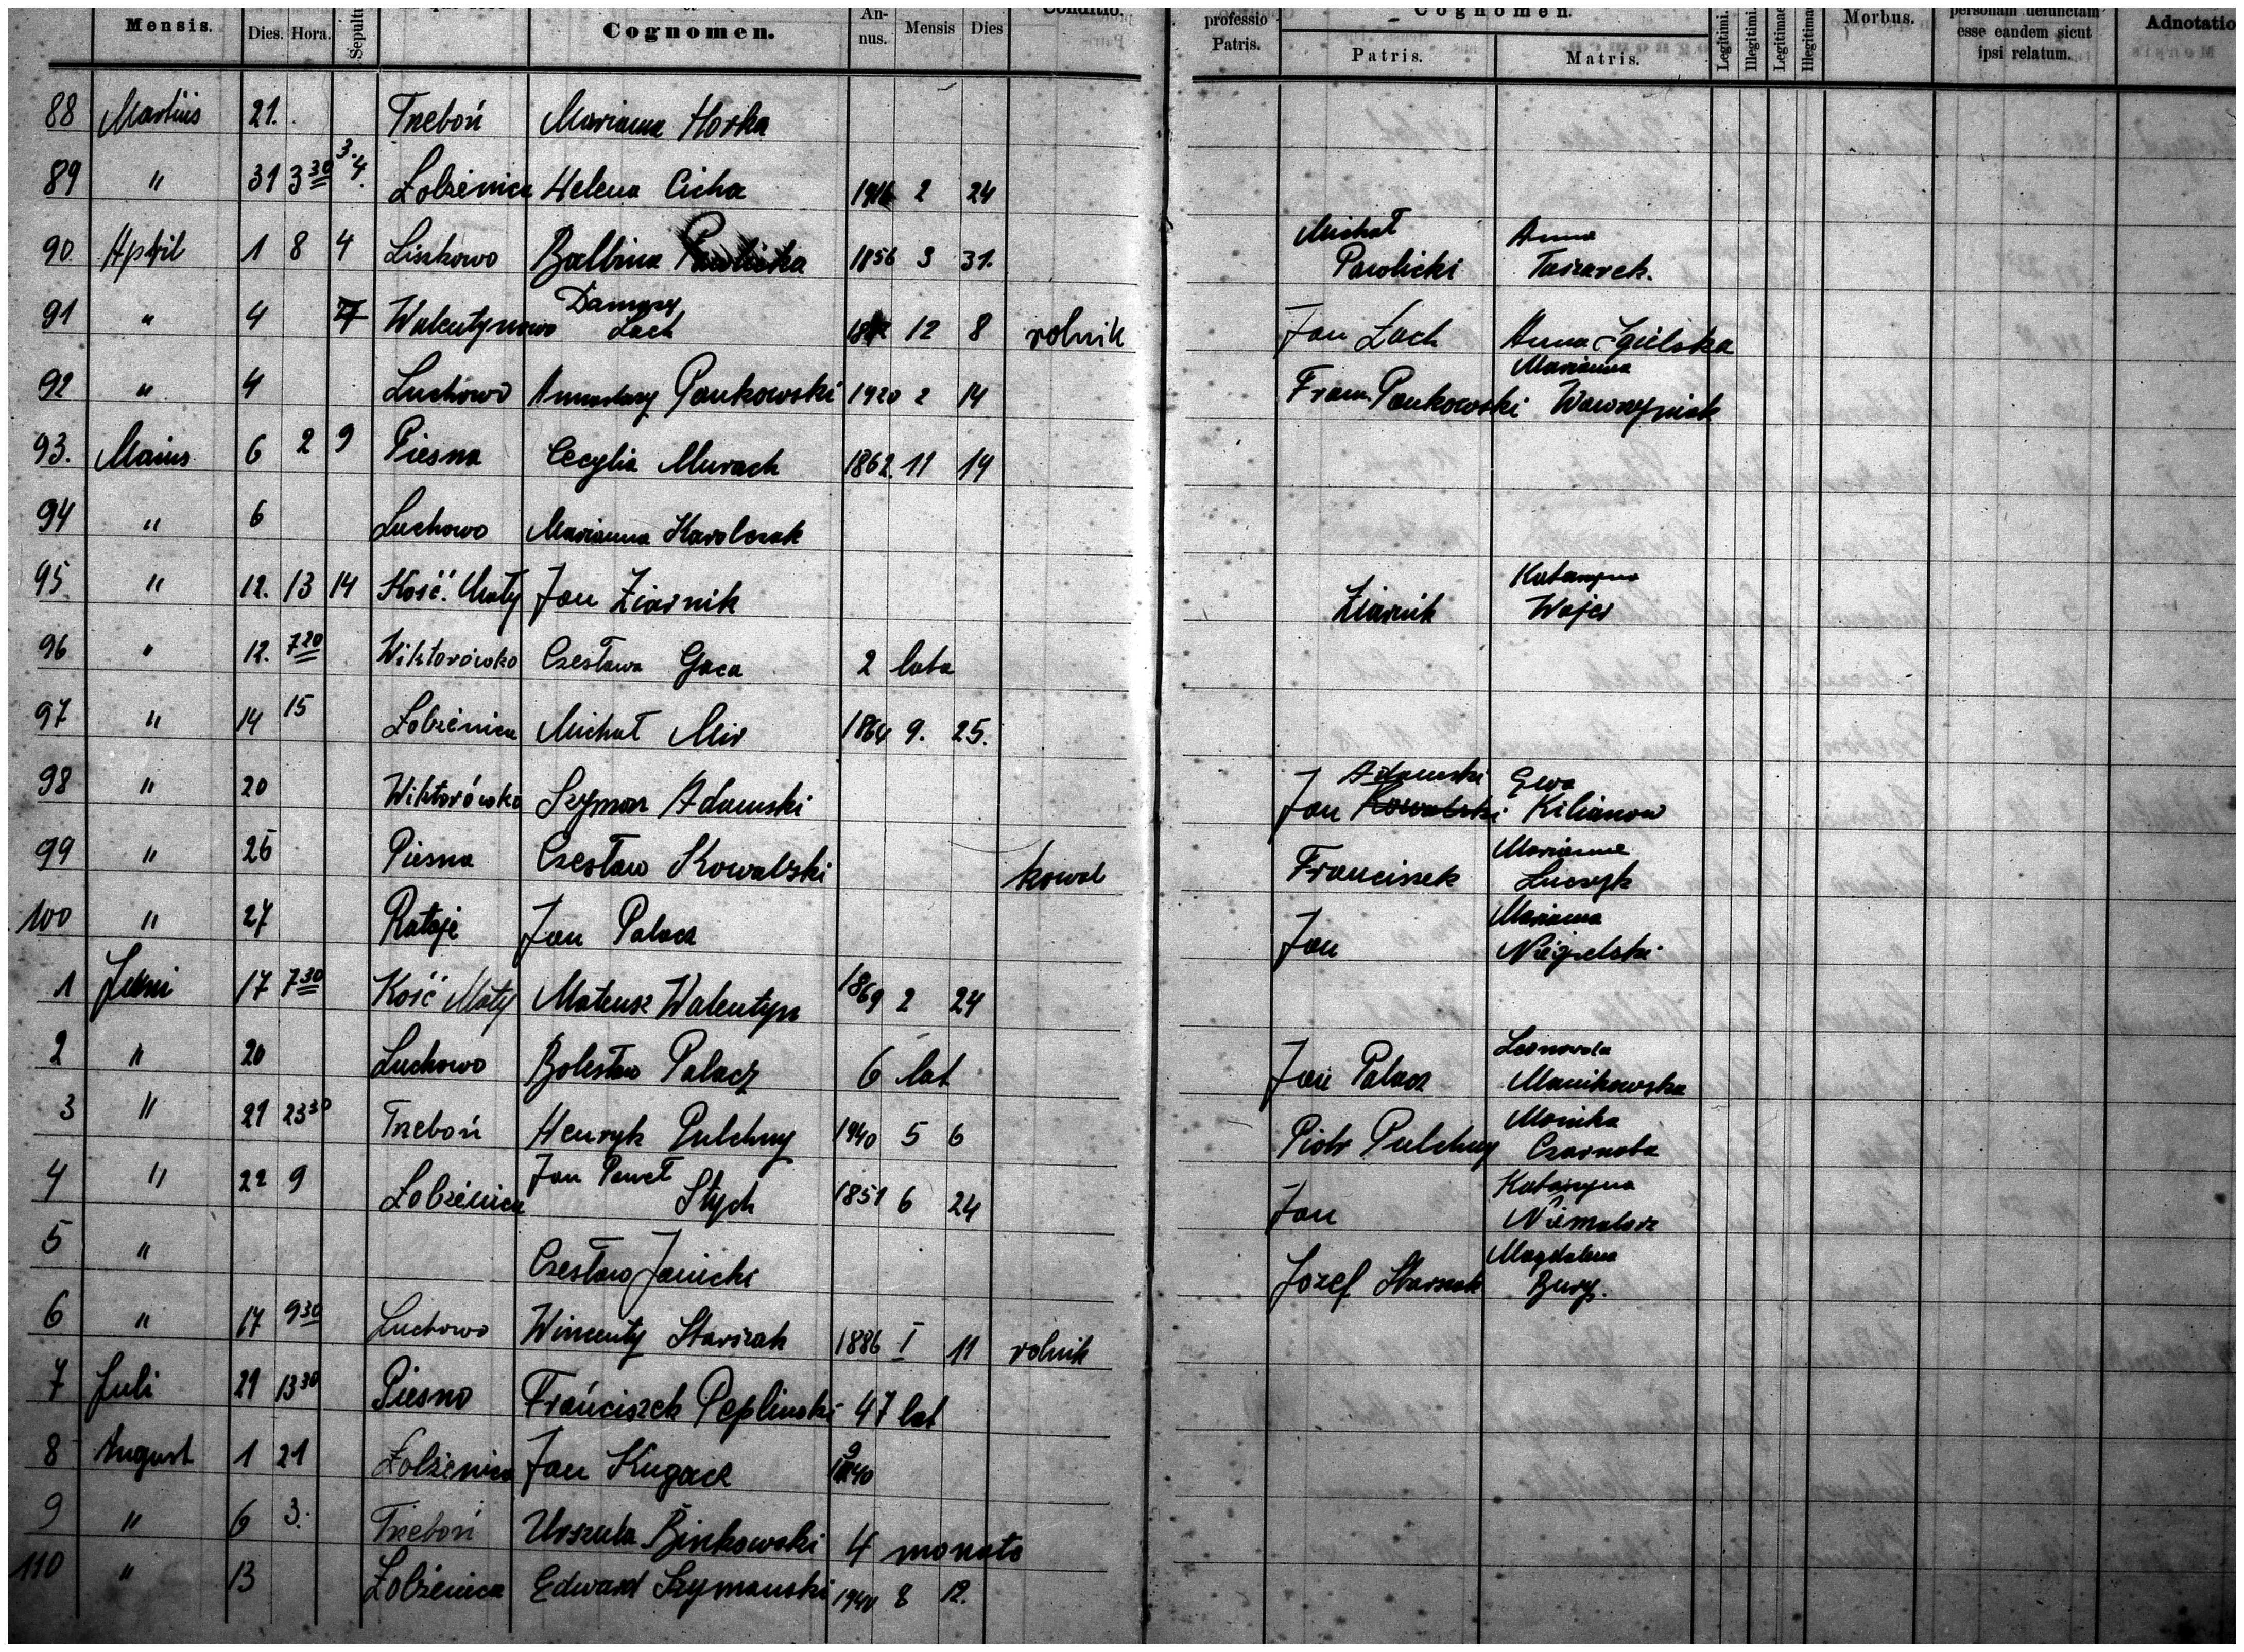 Mensis. Dies. Hora. Cognomen. Annus. Mensis Dies Conditio. professio Patris. Cognomen. Patris. Matris. Legitimi. Illegitimi. Legitimae Illegitimae Morbus. personam defunctam esse eandem sicut ipsi relatum. Adnotatio
88 Martius 21. Trzeboń Marianna Horka
89 " 31 3 30 3. 4. Łobżenica Helena Cicha 1916 2 24
90. April 1 8 4 Liszkowo Balbina Pawlicka 1856 3 31. Michał Pawlicki Anna
91 " 4 7 Walentynowo Damazy Lach 12 8 rolnik Jan Lach Anna Igielska
92 " 4 Luchowo Pankowski 1920 2 14 Fran. Pankowski Marianna Wawrzyniak
93. Maius 6 2 9 Piesna Cecylia Murach 1862. 11 14
94 " 6 Luchowo Marianna Karolczak
95 " 12. 13 14 Kość. Mały Jan Ziarnik Ziarnik Katarzyna Wojci
96 " 12. 7 20 Wiktorówko Czesława Gaca 2 lata
97 " 14 15 Łobżenica Michał Mir 1864 9. 25.
98 " 20 Wiktorówko Szymon Adamski Jan Kowalski Adamski Ewa Kilianow
99 " 26 Piesna Czesław Kowalski kowal Franciszek Marianna Łuczyk
100 " 27 Rataje Jan Palacz Jan Marianna
1 Juni 17 7 30 Kość Mały Mateusz Walentyn 1869 2 24
2 " 20 Luchowo Bolesław Palacz 6 lat Jan Palacz Manikowska
3 " 21 23 30 Trzeboń Henryk Pulchny 1940 5 6 Piotr Pulchny Monika Czarnota
4 " 22 9 Łobżenica Jan Paweł Stych 1851 6 24 Jan Katarzyna
5 " Czesław Janicki Józef Starszak Magdalena Bury.
6 " 17 9 30 Luchowo Wincenty Starszak 1886 I 11 rolnik
7 Juli 21 13 30 Piesno Franciszek Peplinski 47 lat
8 August 1 21 Łobżenica Jan Kugacz 1940
9 " 6 3. Trzeboń Urszula Binkowski 4 monato
110 " 13 Łobżenica Edward Szymanski 1940 8 12.